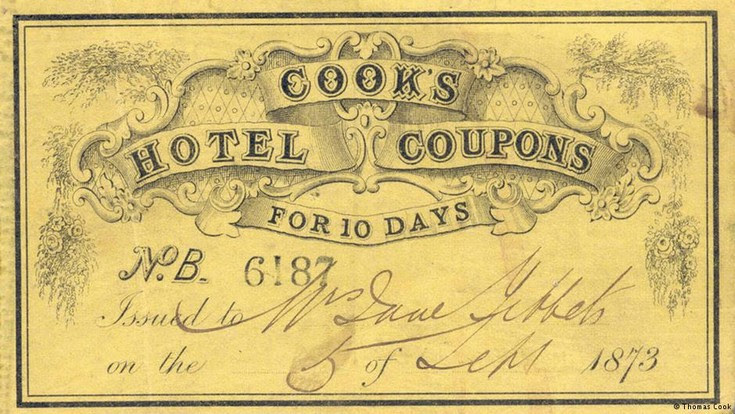 COOK'S
HOTEL COUPONS
FOR 10 DAYS
No. B. 6187
Issued to Mrs Jane Tibbets
on the 5 of Sept 1873
© Thomas Cook